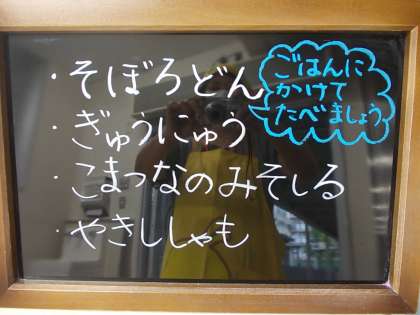 ・そぼろどん
・ぎゅうにゅう
・こまつなのみそしる
・やきししゃも
ごはんに
かけて
たべましょう